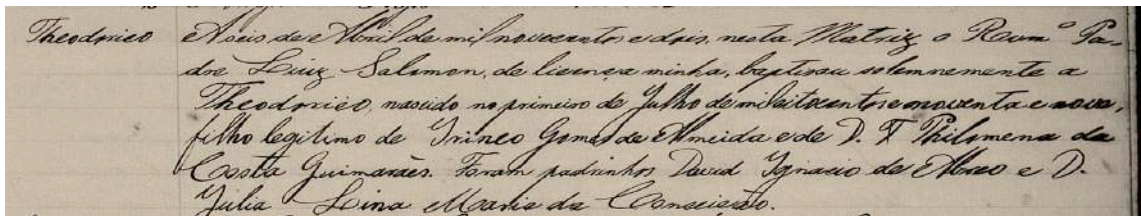 Theodorico A seis de Abril de mil novecentos e dois, nesta Matriz o Revmº Pa-
dre Luiz Salamon, de licença minha, baptisou solemnemente a
Theodorico, nascido no primeiro de Julho de mil oitocentos e noventa e nove,
filho legitimo de Irineo Gomes de Almeida e de D. F. Philomena da
Costa Guimarães. Foram padrinhos David Ignacio de Abreo e D.
Julia Lina Maria da Conceição.